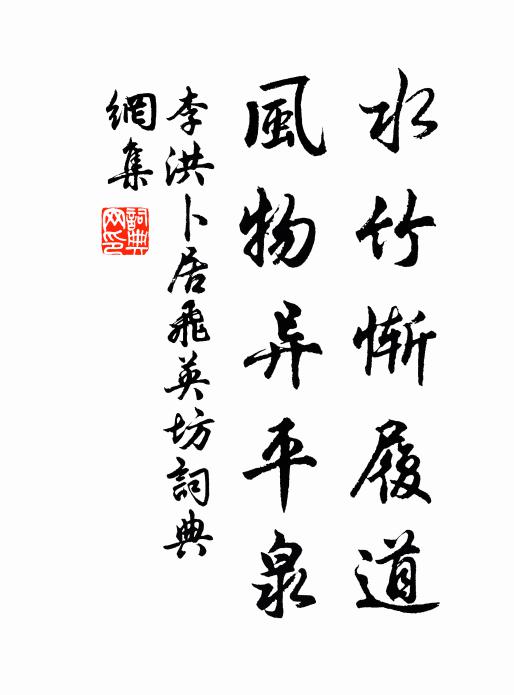 水竹慚履道
風物异平泉
李洪卜居飛英坊詞典
網集
詞典
网印